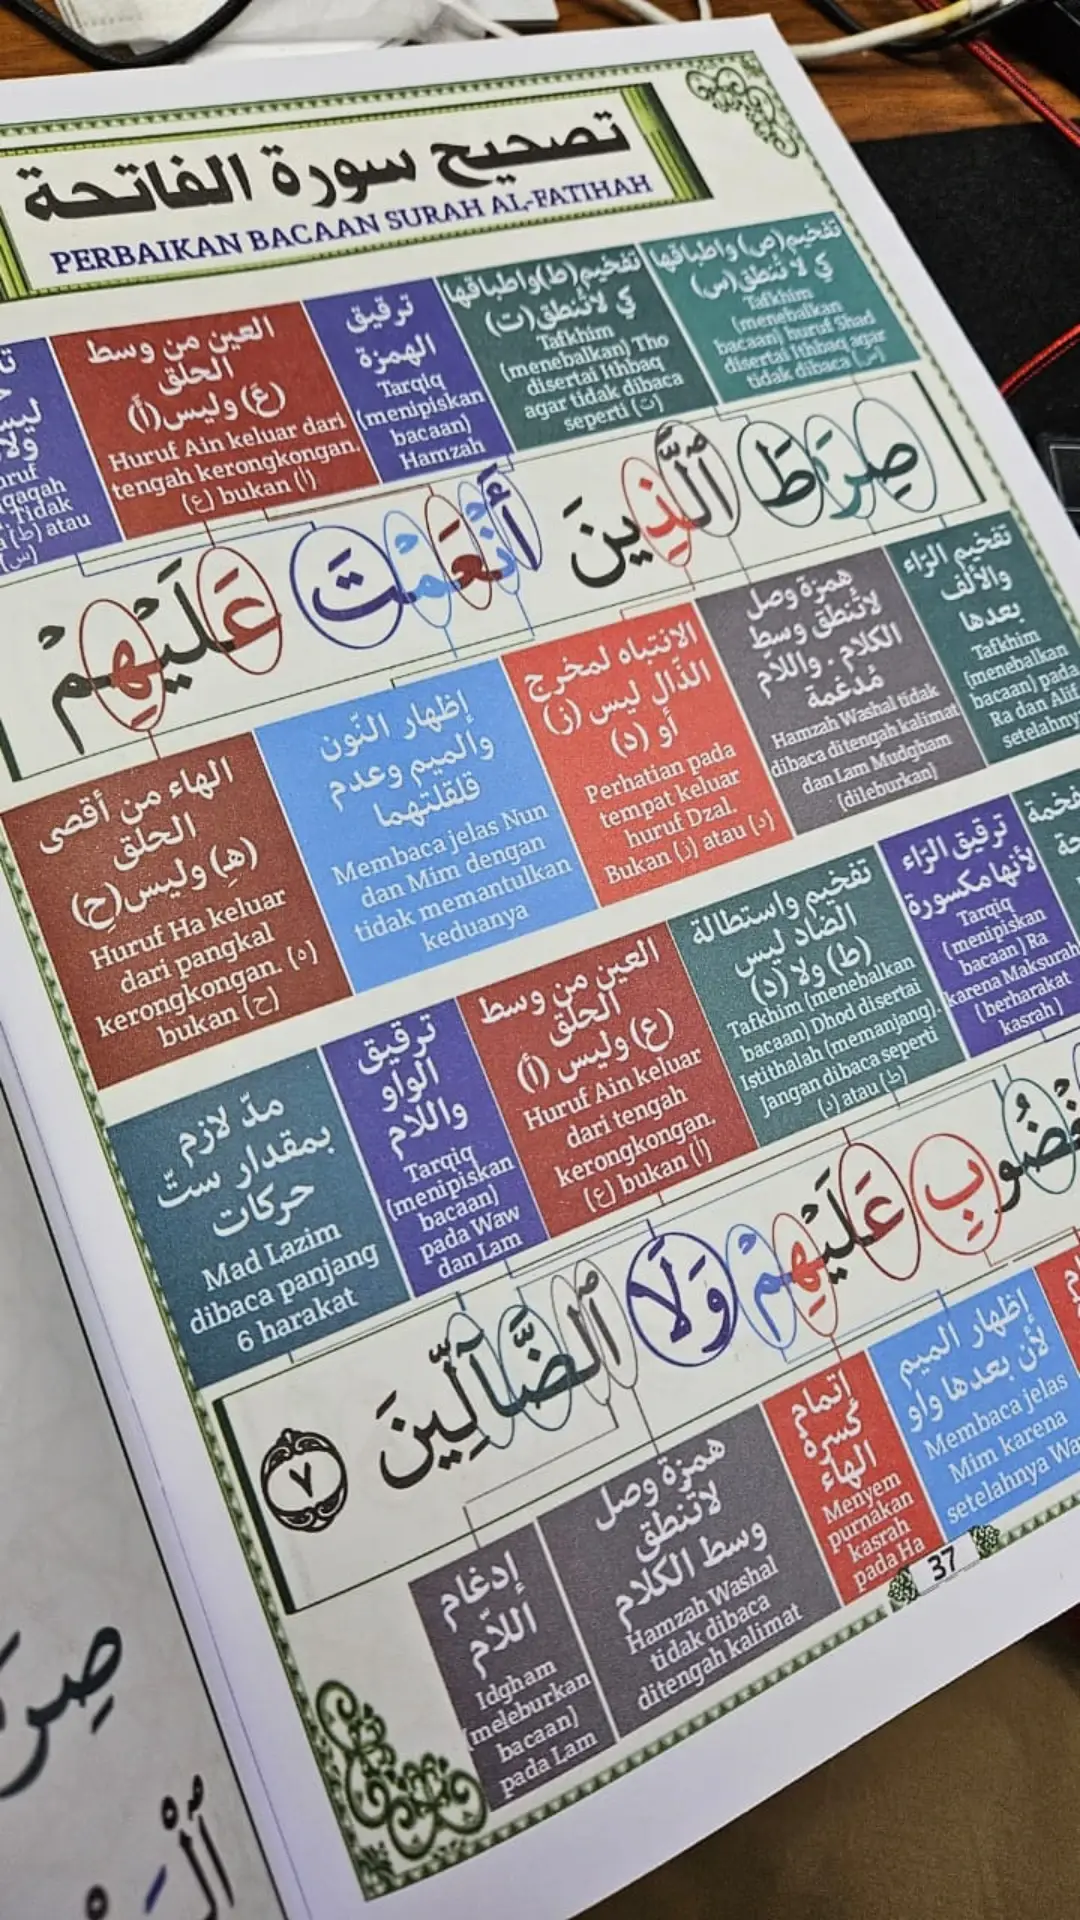 تصحيح سورة الفاتحة
PERBAIKAN BACAAN SURAH AL-FATIHAH
تفخيم (ص) واطباقها
كي لا تنطق (س)
Tafkhim
(menebalkan
bacaan) huruf Shad
disertai Ithbaq agar
tidak dibaca (س)
تفخيم (ط) واطباقها
كي لاتنطق (ت)
Tafkhim
(menebalkan) Tho
disertai Ithbaq
agar tidak dibaca
seperti (ت)
ترقيق
الهمزة
Tarqiq
(menipiskan
bacaan)
Hamzah
العين من وسط
الحلق
(ع) وليس (أ)
Huruf Ain keluar dari
tengah kerongkongan.
(ع) bukan (ا)
ليس
ولا
uruf
Tidak
(ط) atau
(س)
صِرَٰطَ ٱلَّذِينَ أَنْعَمْتَ عَلَيْهِمْ
تفخيم الرّاء
والألف
بعدها
Tafkhim
(menebalkan
bacaan) pada
Ra dan Alif
setelahny
همزة وصل
لاتُنطق وسط
الكلام . واللاّم
مُدغمة
Hamzah Washal tidak
dibaca ditengah kalimat
dan Lam Mudgham
(dileburkan)
الانتباه لمخرج
الذّال ليس (ز)
أو (د)
Perhatian pada
tempat keluar
huruf Dzal.
Bukan (ز) atau (د)
إظهار النّون
والميم وعدم
قلقلتهما
Membaca jelas Nun
dan Mim dengan
tidak memantulkan
keduanya
الهاء من أقصى
الحلق
(هِ) وليس (ح)
Huruf Ha keluar
dari pangkal
kerongkongan. (ه)
bukan (ح)
ترقيق الرّاء
لأنها مكسورة
Tarqiq
(menipiskan
bacaan) Ra
karena Maksurah
(berharakat
kasrah)
تفخيم واستطالة
الضاد ليس
(ظ) ولا (د)
Tafkhim (menebalkan
bacaan) Dhod disertai
Istithalah (memanjang).
Jangan dibaca seperti
(د) atau (ظ)
العين من وسط
الحلق
(ع) وليس (أ)
Huruf Ain keluar
dari tengah
kerongkongan.
(ع) bukan (ا)
ترقيق
الواو
واللام
Tarqiq
(menipiskan
bacaan)
pada Waw
dan Lam
مدّ لازم
بمقدار ستّ
حركات
Mad Lazim
dibaca panjang
6 harakat
ضُوبِ عَلَيْهِمْ وَلَا ٱلضَّآلِّينَ ٧
إظهار الميم
لأن بعدها واو
Membaca jelas
Mim karena
setelahnya Wa
إتمام
كسرة
الهاء
Menyem
purnakan
kasrah
pada Ha
همزة وصل
لاتنطق
وسط الكلام
Hamzah Washal
tidak dibaca
ditengah kalimat
إدغام
اللاّم
Idgham
(meleburkan
bacaan)
pada Lam
37